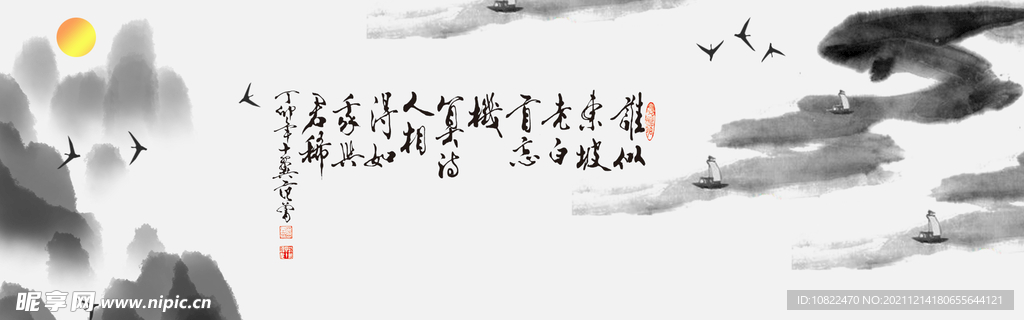 誰似
東坡
老白
首忘
機
算詩
人相
得如
我與
君稀
丁卯年十翼范曾
昵享网 www.nipic.cn
ID:10822470 NO:20211214180655644121